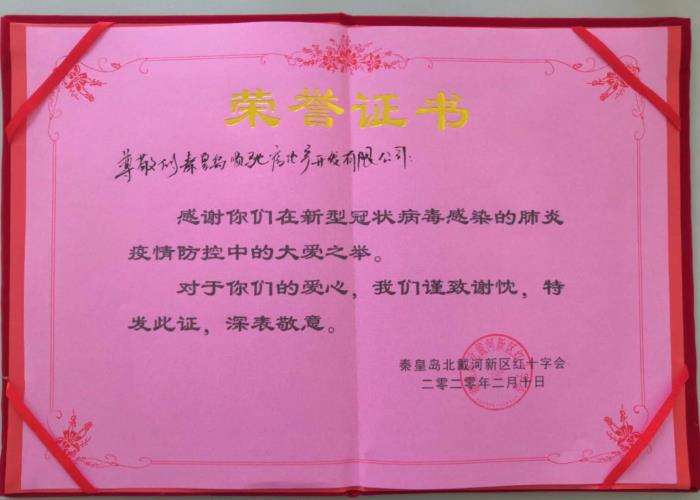 荣誉证书
尊敬的秦皇岛顺驰房地产开发有限公司:
感谢你们在新型冠状病毒感染的肺炎
疫情防控中的大爱之举。
对于你们的爱心，我们谨致谢忱，特
发此证，深表敬意。
秦皇岛北戴河新区红十字会
二零二零年二月十日